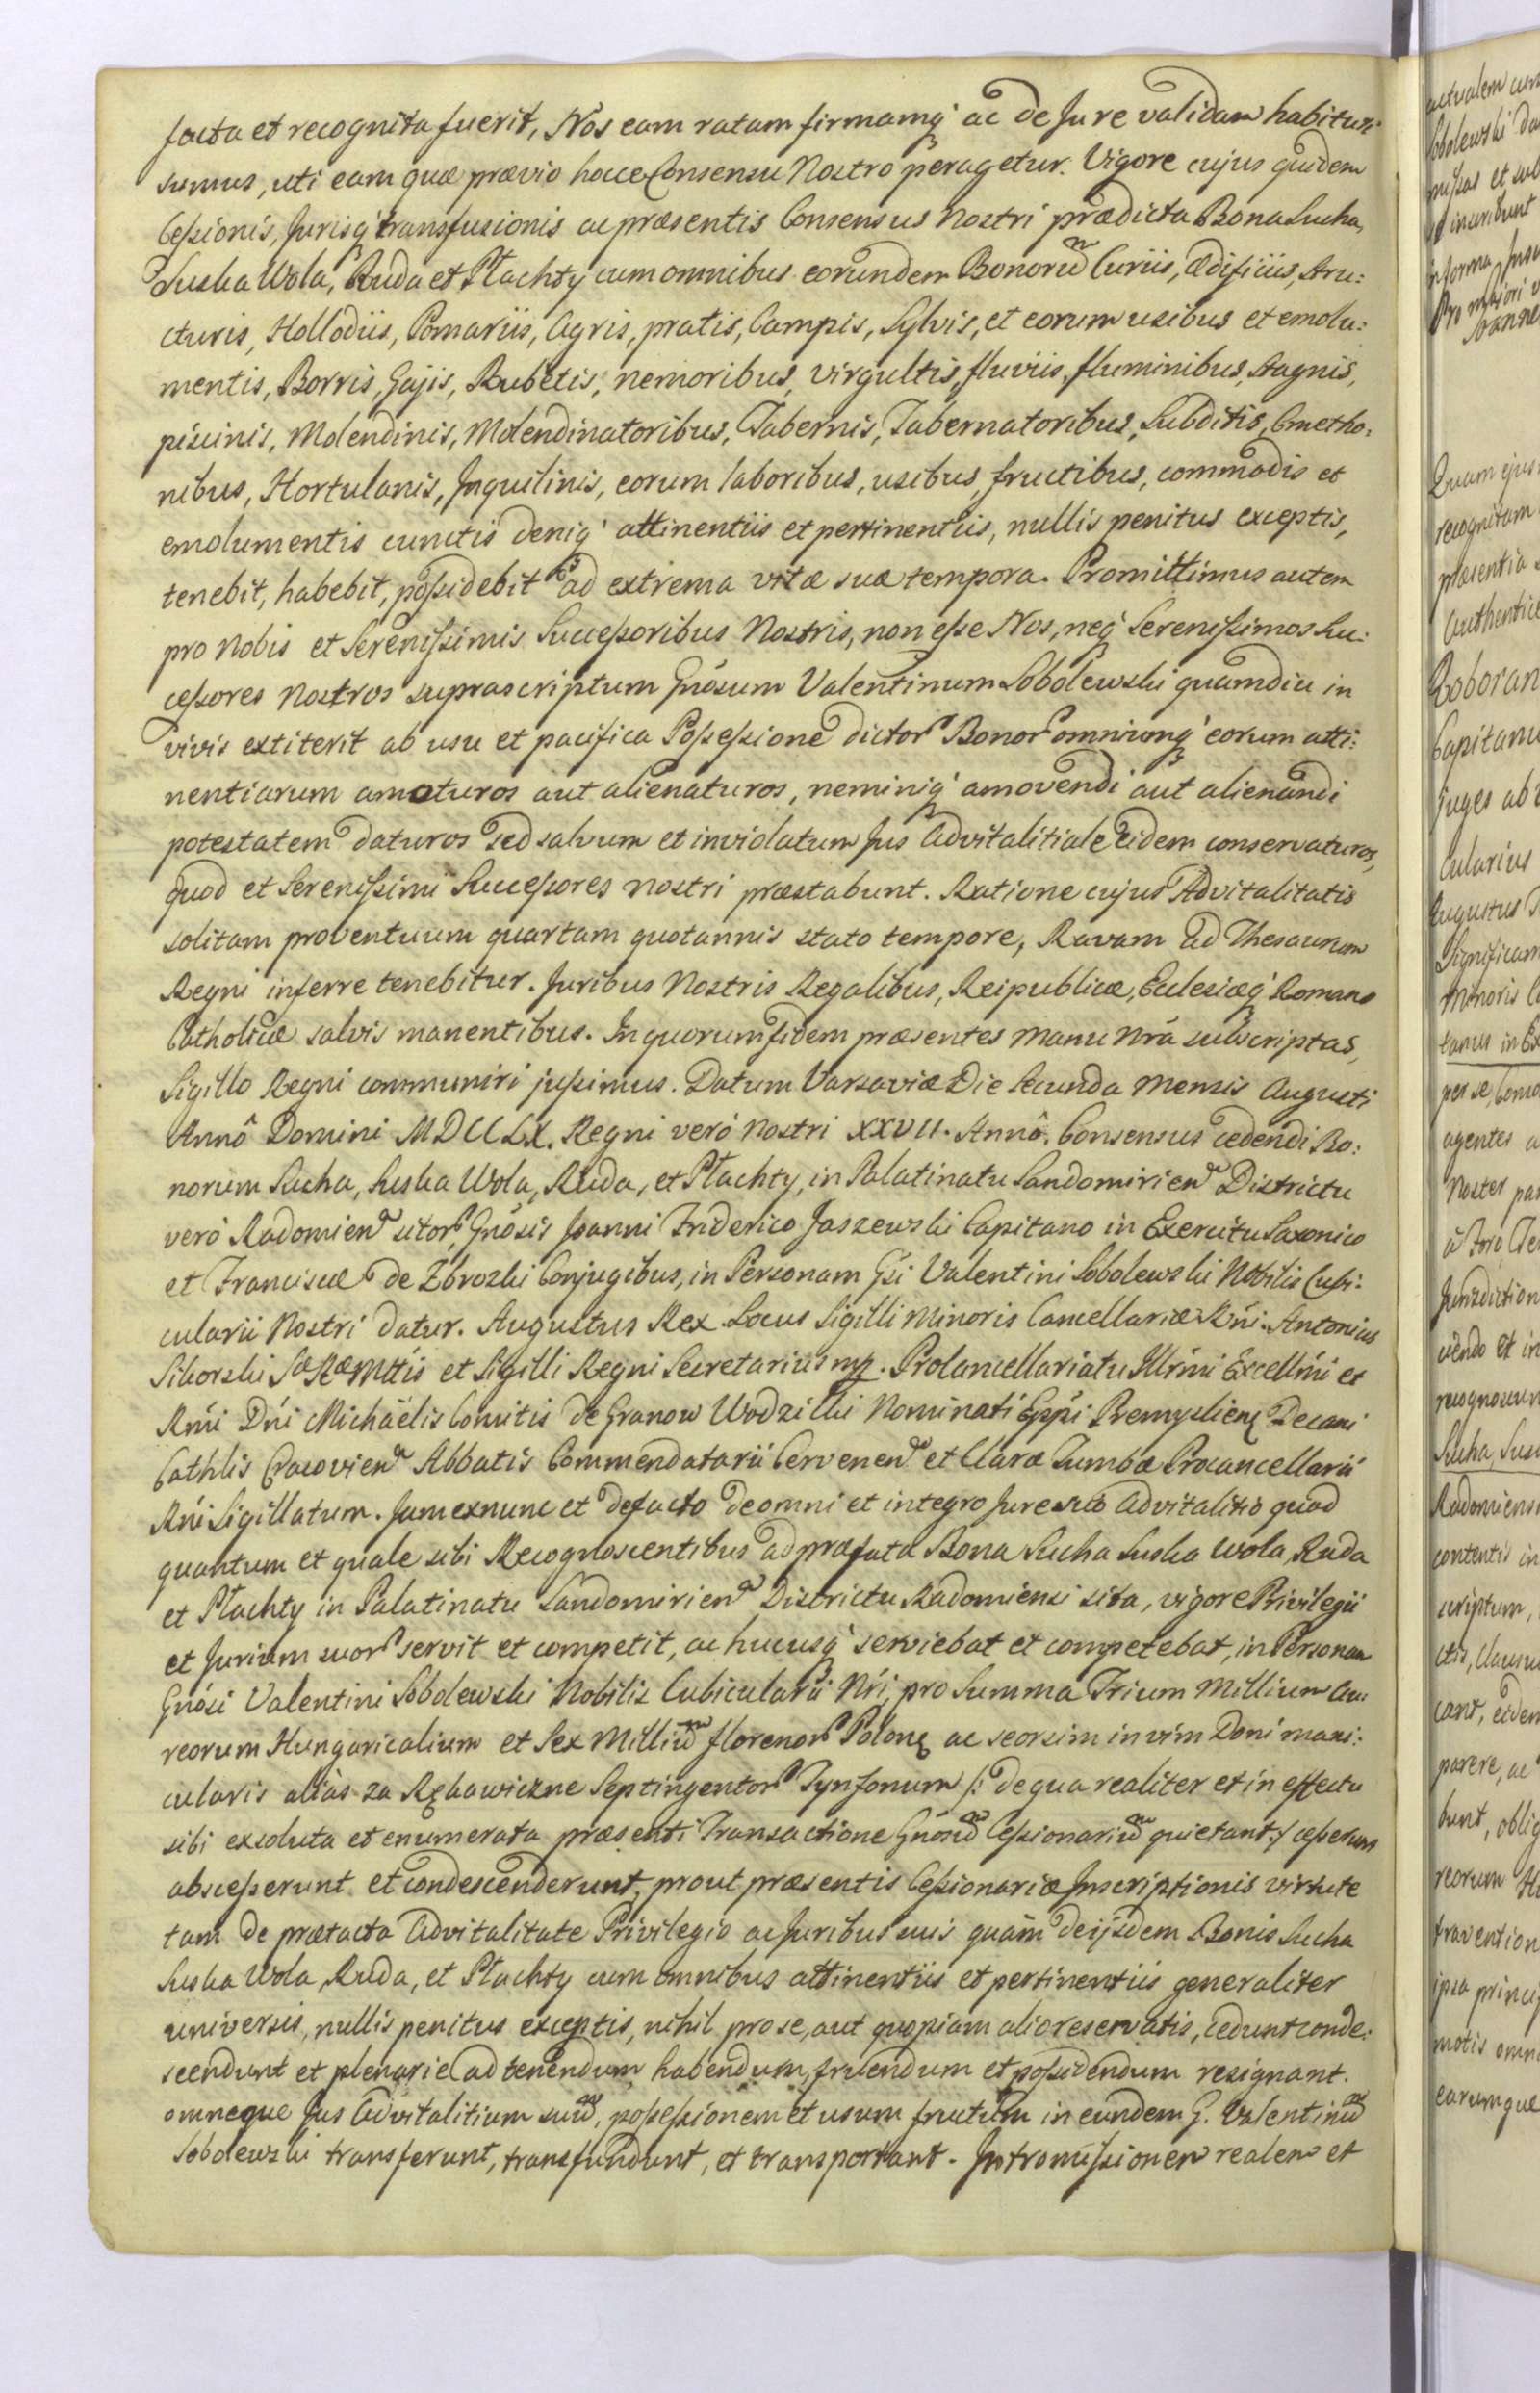 facta et recognita fuerit, Nos eam ratam firmamq́ ac de Jure validam habituri
sumus, uti eam quæ prævio hocce Consensu Nostro peragetur. Vigore cujus quidem
Cessionis, Jurisq́ transfusionis ac præsentis Consensus Nostri prædicta Bona Sucha,
Suska Wola, Ruda et Płachty cum omnibus eorundem Bonorū Curiis, Ædificiis, Stru:
cturis, Hollodiis, Pomariis, Agris, pratis, Campis, Sylvis, et eorum usibus et emolu:
mentis, Borris, Gajis, Rubetis, nemoribus, virgultis, fluviis, fluminibus, stagnis,
piscinis, Molendinis, Molendinatoribus, Tabernis, Tabernatoribus, Subditis, Cmetho:
nibus, Hortulanis, Inquilinis, eorum laboribus, usibus, fructibus, commodis et
emolumentis cunctis deniq́ attinentiis et pertinentiis, nullis penitus exceptis,
tenebit, habebit, possidebit ad extrema vitæ suæ tempora. Promittimus autem
pro Nobis et Serenissimis Successoribus Nostris, non esse Nos, neq́ Serenissimos Suc:
cessores Nostros suprascriptum Gnósum Valentinum Sobolewski quamdiu in
vivis extiterit ab usu et pacifica Possessione dictor Bonor omniumq́ eorum atti:
nentiarum amoturos aut alienaturos, neminiq́ amovendi aut alienandi
potestatem daturos sed salvum et inviolatum Jus Advitalitiale eidem conservaturos,
quod et Serenissimi Successores nostri præstabunt. Ratione cujus Advitalitatis
solitam proventuum quartam quotannis stato tempore, Ravam ad Thesaurum
Regni inferre tenebitur. Juribus Nostris Regalibus, Reipublicæ, Ecclesiæq́ Romano
Catholicæ salvis manentibus. In quorum fidem præsentes manu Nrá subscriptas,
Sigillo Regni communiri jussimus. Datum Varsaviæ Die Secunda Mensis Augusti
Annô Domini MDCCLX. Regni veró Nostri XXVII. Annô. Consensus cedendi Bo:
norum Sucha, Suska Wola, Ruda, et Płachty, in Palatinatu Sandomirien Districtu
veró Radomien sitor, Gnósis Joanni Friderico Jaszewski Capitano in Exercitu Saxonico
et Franciscæ de Zbroszki Conjugibus, in Personam Gsi Valentini Sobolewski Nobilis Cubi:
cularii Nostri datur. Augustus Rex Locus Sigilli Minoris Cancellariæ Rńi. Antonius
Sikorski Sæ Ræ Mttis et Sigilli Regni Secretarius mp. Procancellariatu Illrmi Excellmi et
Rmi Dńi Michaelis Comitis de Granow Wodzicki Nominati Eppi Premyslien Decani
Cathlis Cracovien Abbatis Commendatarii Cervenen et Claræ Tumbæ Procancellarii
Rńi Sigillatum. Jam ex nunc et de facto de omni et integro Jure suo Advitalitio quod
quantum et quale sibi Recognoscentibus ad præfata Bona Sucha Suska Wola, Ruda
et Płachty in Palatinatu Sandomirien Districtu Radomiensi sita, vigore Privilegii
et Jurium suor servit et competit, ac hucusq́ serviebat et competebat, in Personam
Gnósi Valentini Sobolewski Nobilis Cubicularii Nri, pro Summa Trium Millium Au:
reorum Hungaricalium et Sex Milliū florenor Polon ac seorsim in vim Doni mani:
cularis aliàs za Rękawiczne Septingentor Tynfonum /: de qua realiter et in effectu
sibi exsoluta et enumerata præsenti Transactione Gnósū Cessionariū quietant :/ cesserunt
abscesserunt et condescenderunt, prout præsentis Cessionariæ Inscriptionis virtute
tam de prætacta Advitalitate Privilegio ac Juribus suis quàm de ijsdem Bonis Sucha
Suska Wola, Ruda, et Płachty cum omnibus attinentiis et pertinentiis generaliter
universis, nullis penitus exceptis, nihil pro se, aut quopiam alio reservatis, cedunt conde:
scendunt et plenarie ad tenendum habendum, fruendum et possidendum resignant.
omneque Jus Advitalitium suū, possessionem et usum fructum in eundem G. Valentinū
Sobolewski transferunt, transfundunt, et transportant. Intromissionem realem et